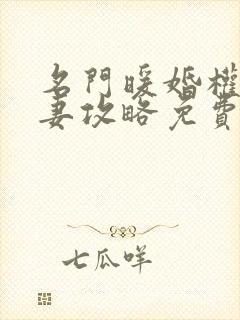 名門暖婚權
妻攻略免費
七瓜咩